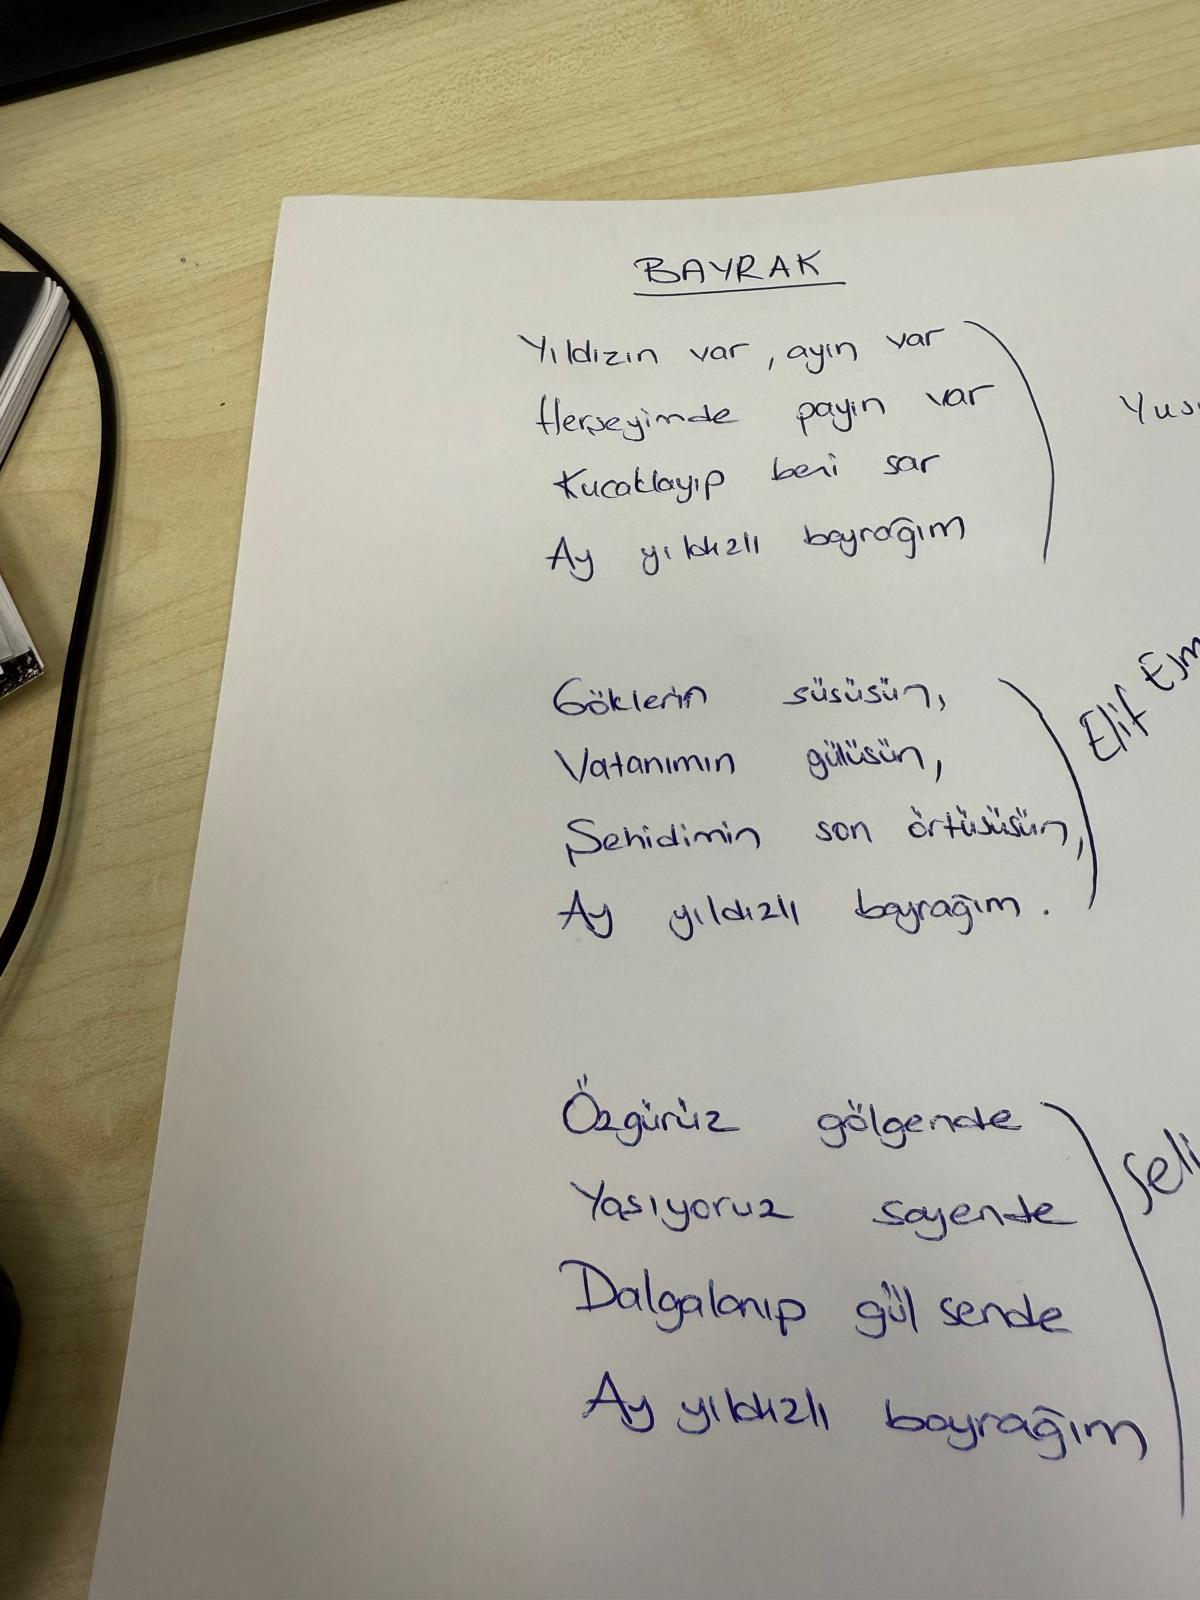 BAYRAK
Yıldızın var, ayın var
Herşeyimde payın var
Kucaklayıp beni sar
Ay yıldızlı bayrağım
Göklerin süsüsün,
Vatanımın gülüsün,
Elif
Şehidimin son örtüsüsün,
Ay yıldızlı bayrağım.
Özgürüz gölgende
Yaşıyoruz sayende
Dalgalanıp gül sende
Ay yıldızlı bayrağım